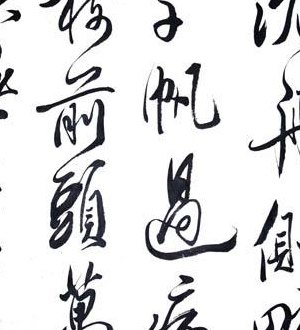 沉舟側畔
千帆過病
樹前頭萬